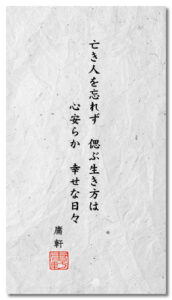 亡き人を忘れず　偲ぶ生き方は
心安らか　幸せな日々
庸軒